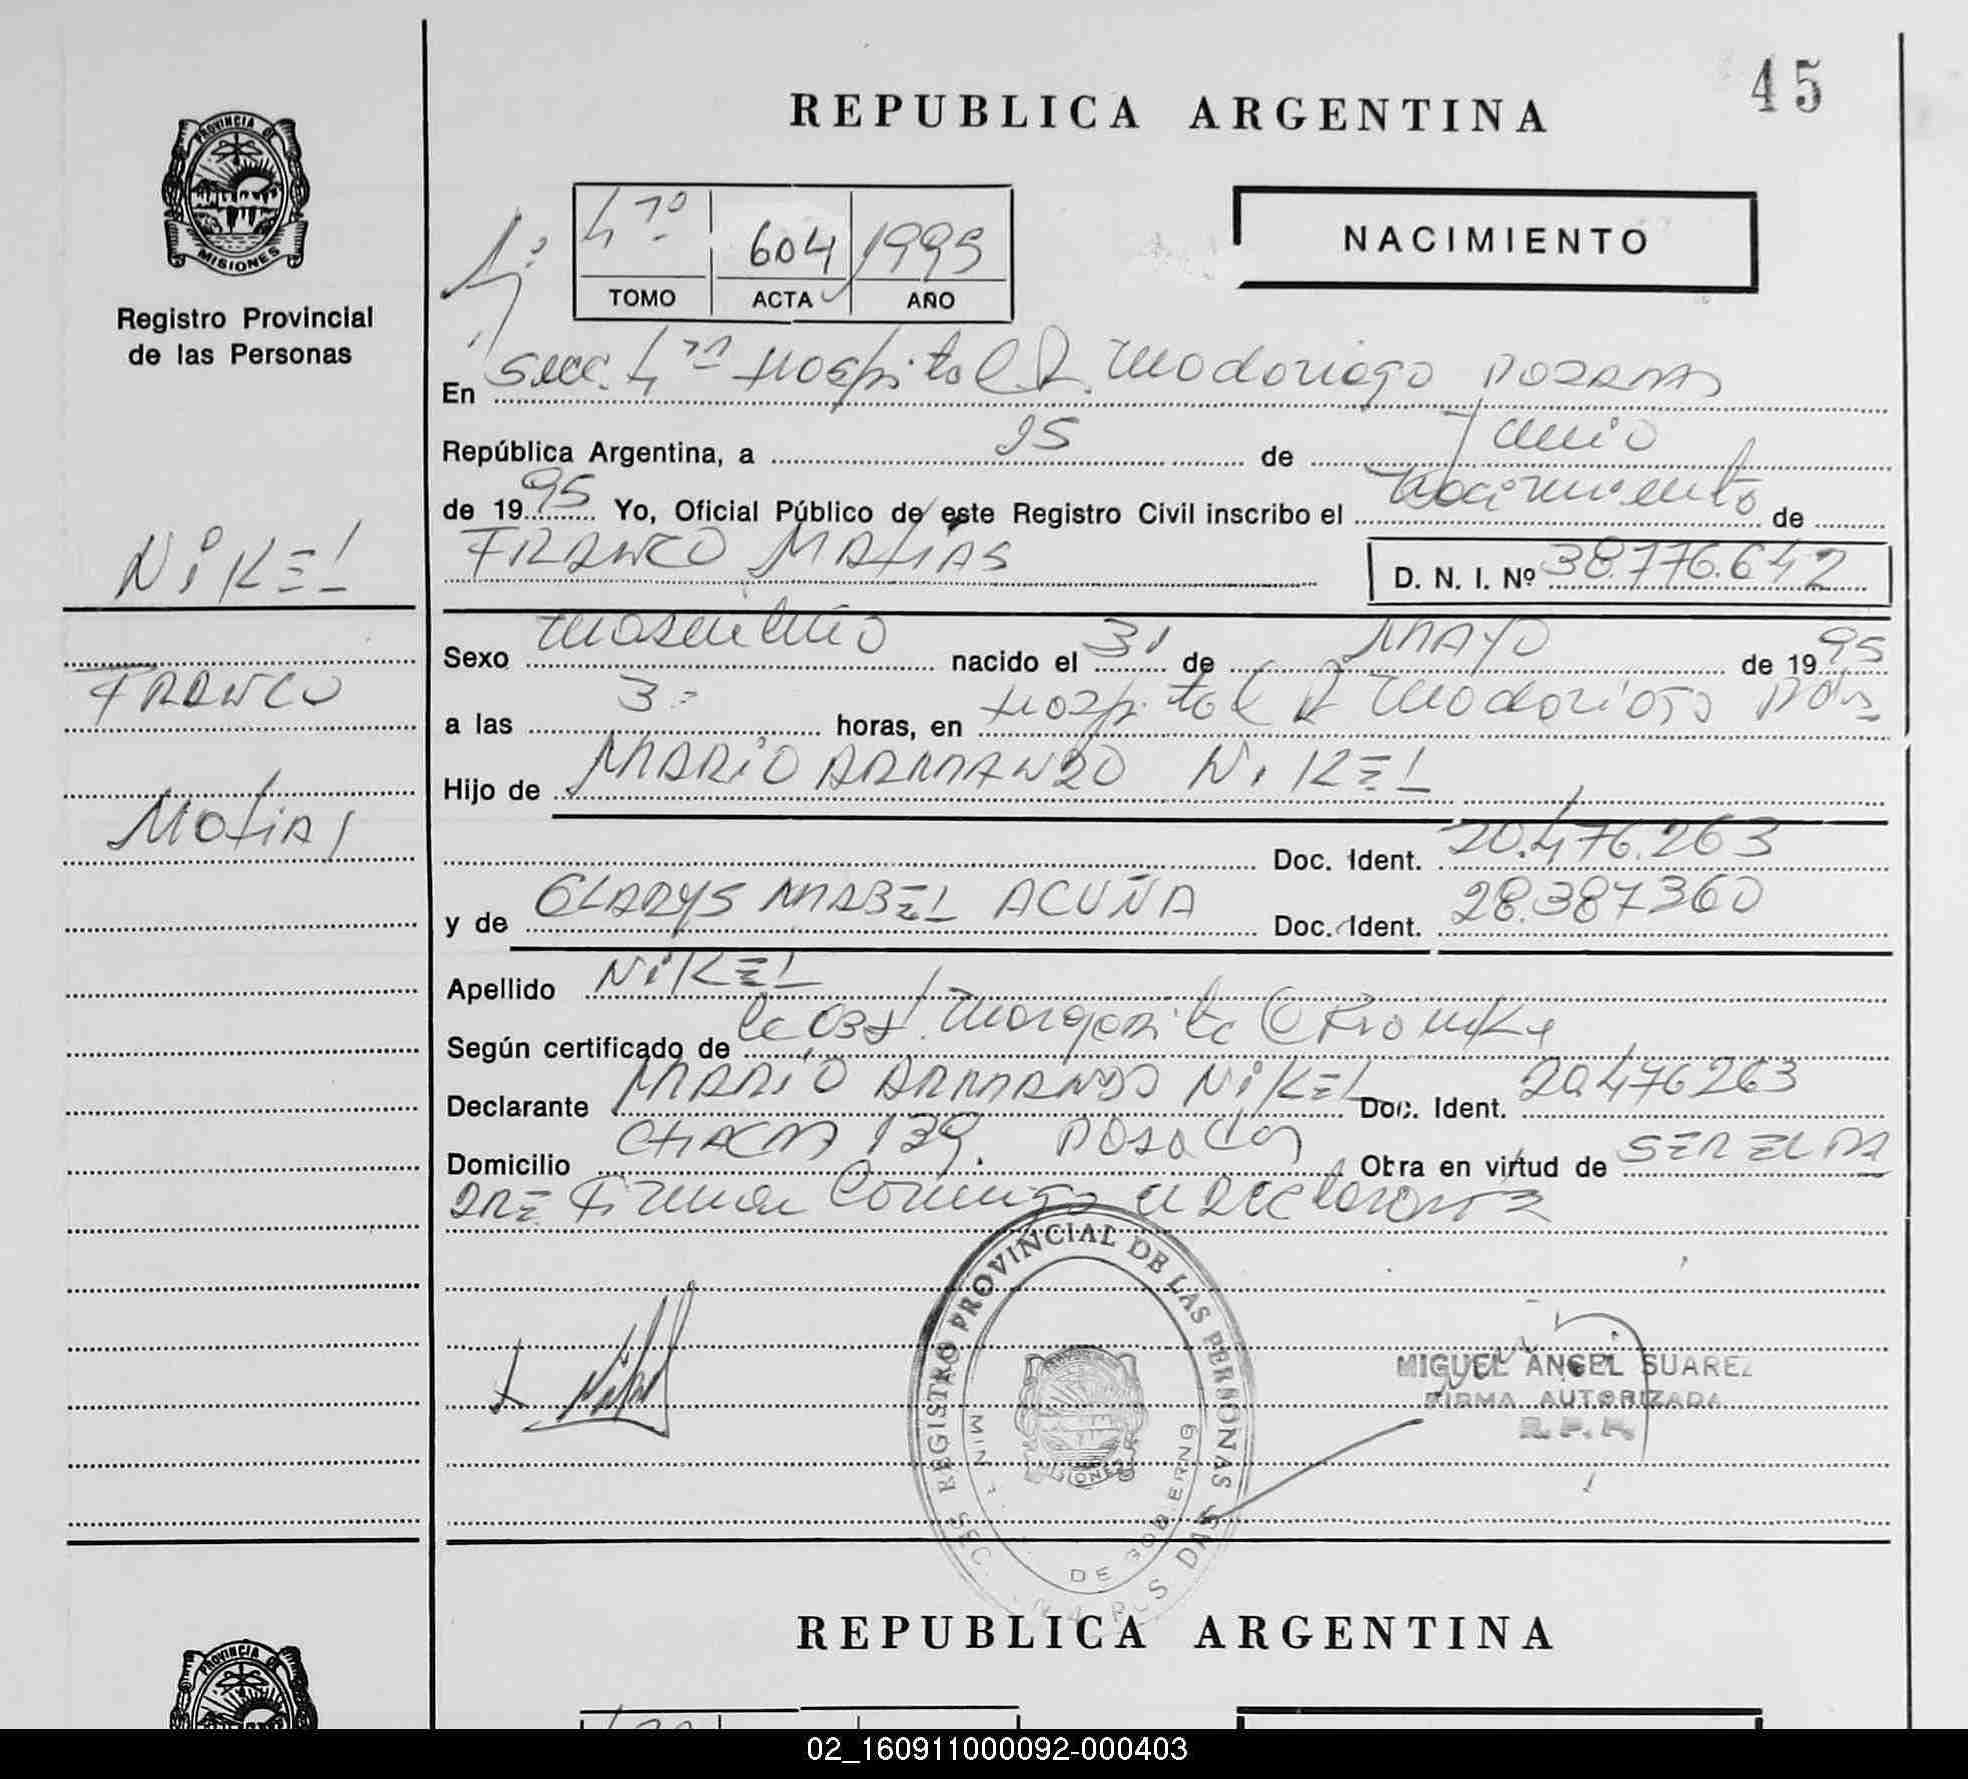 45
REPUBLICA ARGENTINA
PROVINCIA DE
MISIONES
Registro Provincial
de las Personas
NACIMIENTO
4º 604 1995
TOMO ACTA AÑO
En Secc. 4ta Hospital R. Madariaga POSADAS
República Argentina, a 15 de Junio
de 1995 Yo, Oficial Público de este Registro Civil inscribo el Nacimiento de
FRANCO MATIAS D. N. I. Nº 38.776.642
NIKEL
FRANCO
Matias
Sexo masculino nacido el 31 de MAYO de 1995
a las 3 horas, en Hospital R Madariaga Pdas
Hijo de MARIO ARMANDO NIKEL
Doc. Ident. 20.476.263
y de GLADYS MABEL ACUÑA Doc. Ident. 28.387360
Apellido NIKEL
Según certificado de la Obst. Margarita C
Declarante MARIO ARMANDO NIKEL Doc. Ident. 20476263
Domicilio CHACRA 139. POSADAS Obra en virtud de SER EL PA
DRE Firma Conmigo el Declarante
REGISTRO PROVINCIAL DE LAS PERSONAS
MISIONES
DE GOBIERNO
MIGUEL ANGEL SUAREZ
FIRMA AUTORIZADA
R. P. P.
REPUBLICA ARGENTINA
PROVINCIA DE
02_160911000092-000403